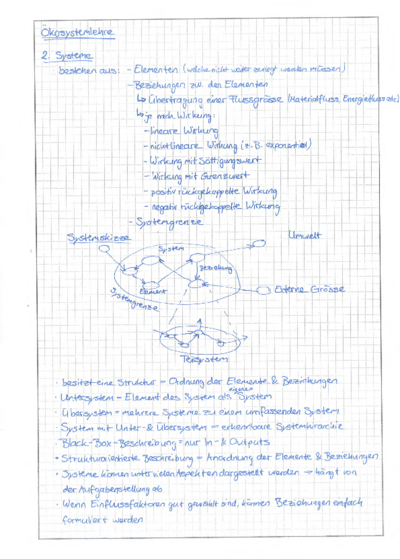 Ökosystemlehre
2. Systeme
bestehen aus: - Elementen (welche nicht weiter zerlegt werden müssen)
- Beziehungen zw. den Elementen
↳ Übertragung einer Flussgrösse (Materialfluss, Energiefluss etc)
↳ je nach Wirkung:
- lineare Wirkung
- nichtlineare Wirkung (z.B. exponentiell)
- Wirkung mit Sättigungswert
- Wirkung mit Grenzwert
- positiv rückgekoppelte Wirkung
- negativ rückgekoppelte Wirkung
- Systemgrenze
Systemskizze
Umwelt
System
Beziehung
Element
Systemgrenze
Externe Grösse
Teilsystem
· besitzt eine Struktur = Ordnung der Elemente & Beziehungen
· Untersystem = Element des System als eigenes System
· Übersystem = mehrere Systeme zu einem umfassenden System
· System mit Unter- & Übersystem = erkennbare Systemhierarchie
· Black-Box-Beschreibung = nur In- & Outputs
· Strukturorientierte Beschreibung = Anordnung der Elemente & Beziehungen
· Systeme können unter vielen Aspekten dargestellt werden → hängt von
der Aufgabenstellung ab
· Wenn Einflussfaktoren gut gewählt sind, können Beziehungen einfach
formuliert werden